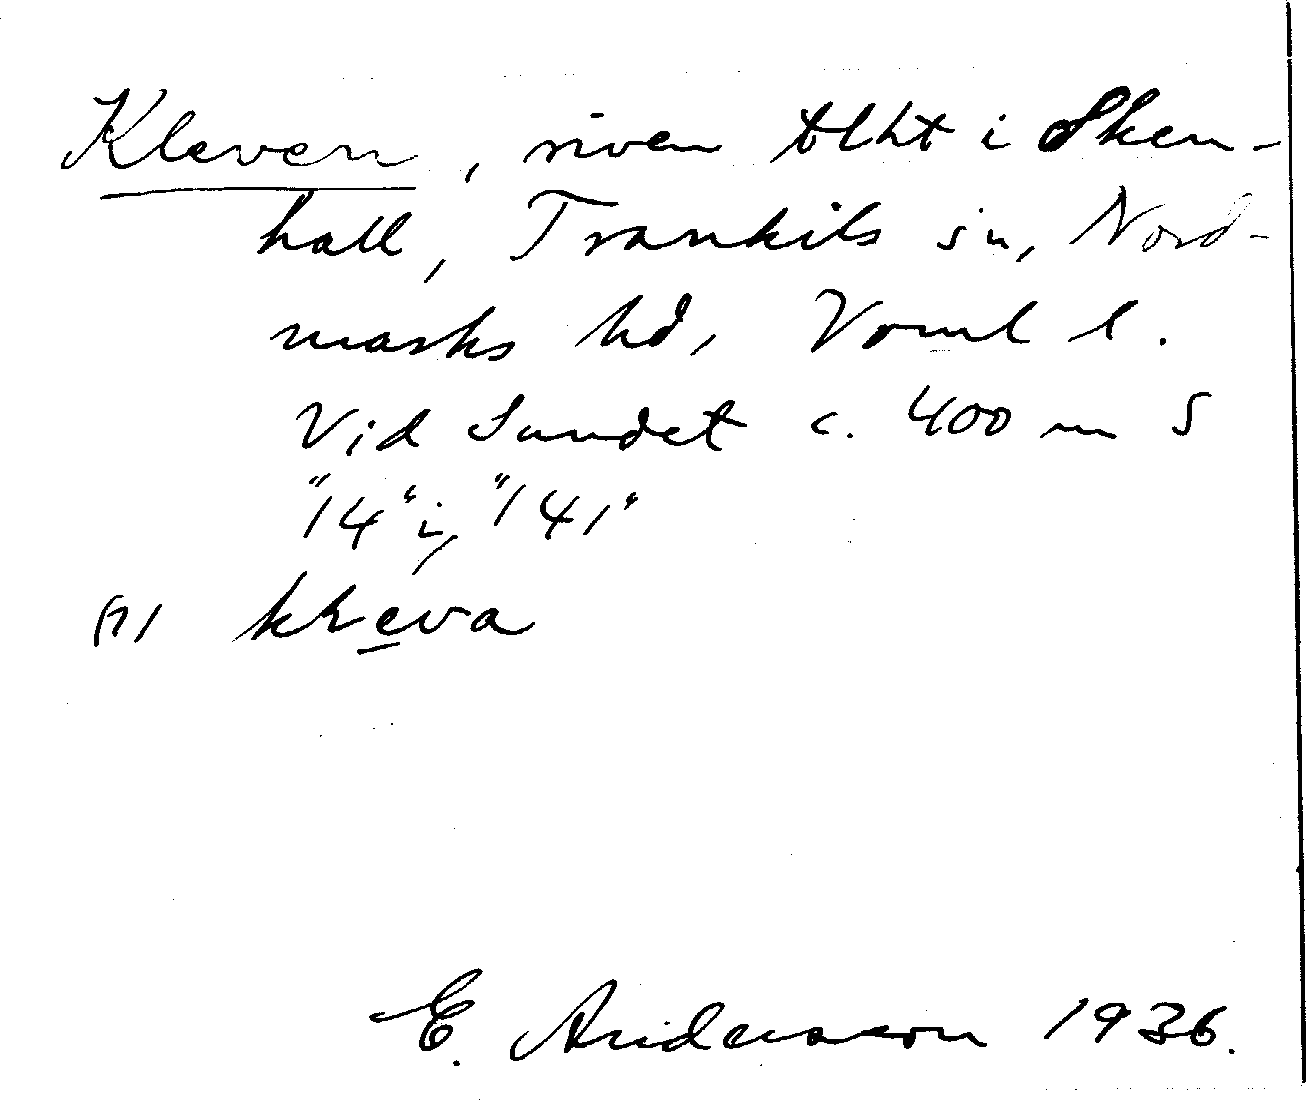 Kleven, riven tlht i Sken-
hall, Trankils sn, Nord-
marks hd, Vrml l.
Vid Sundet c. 400 m S
"14" i, "141"
kleva
E. Andersson 1936.